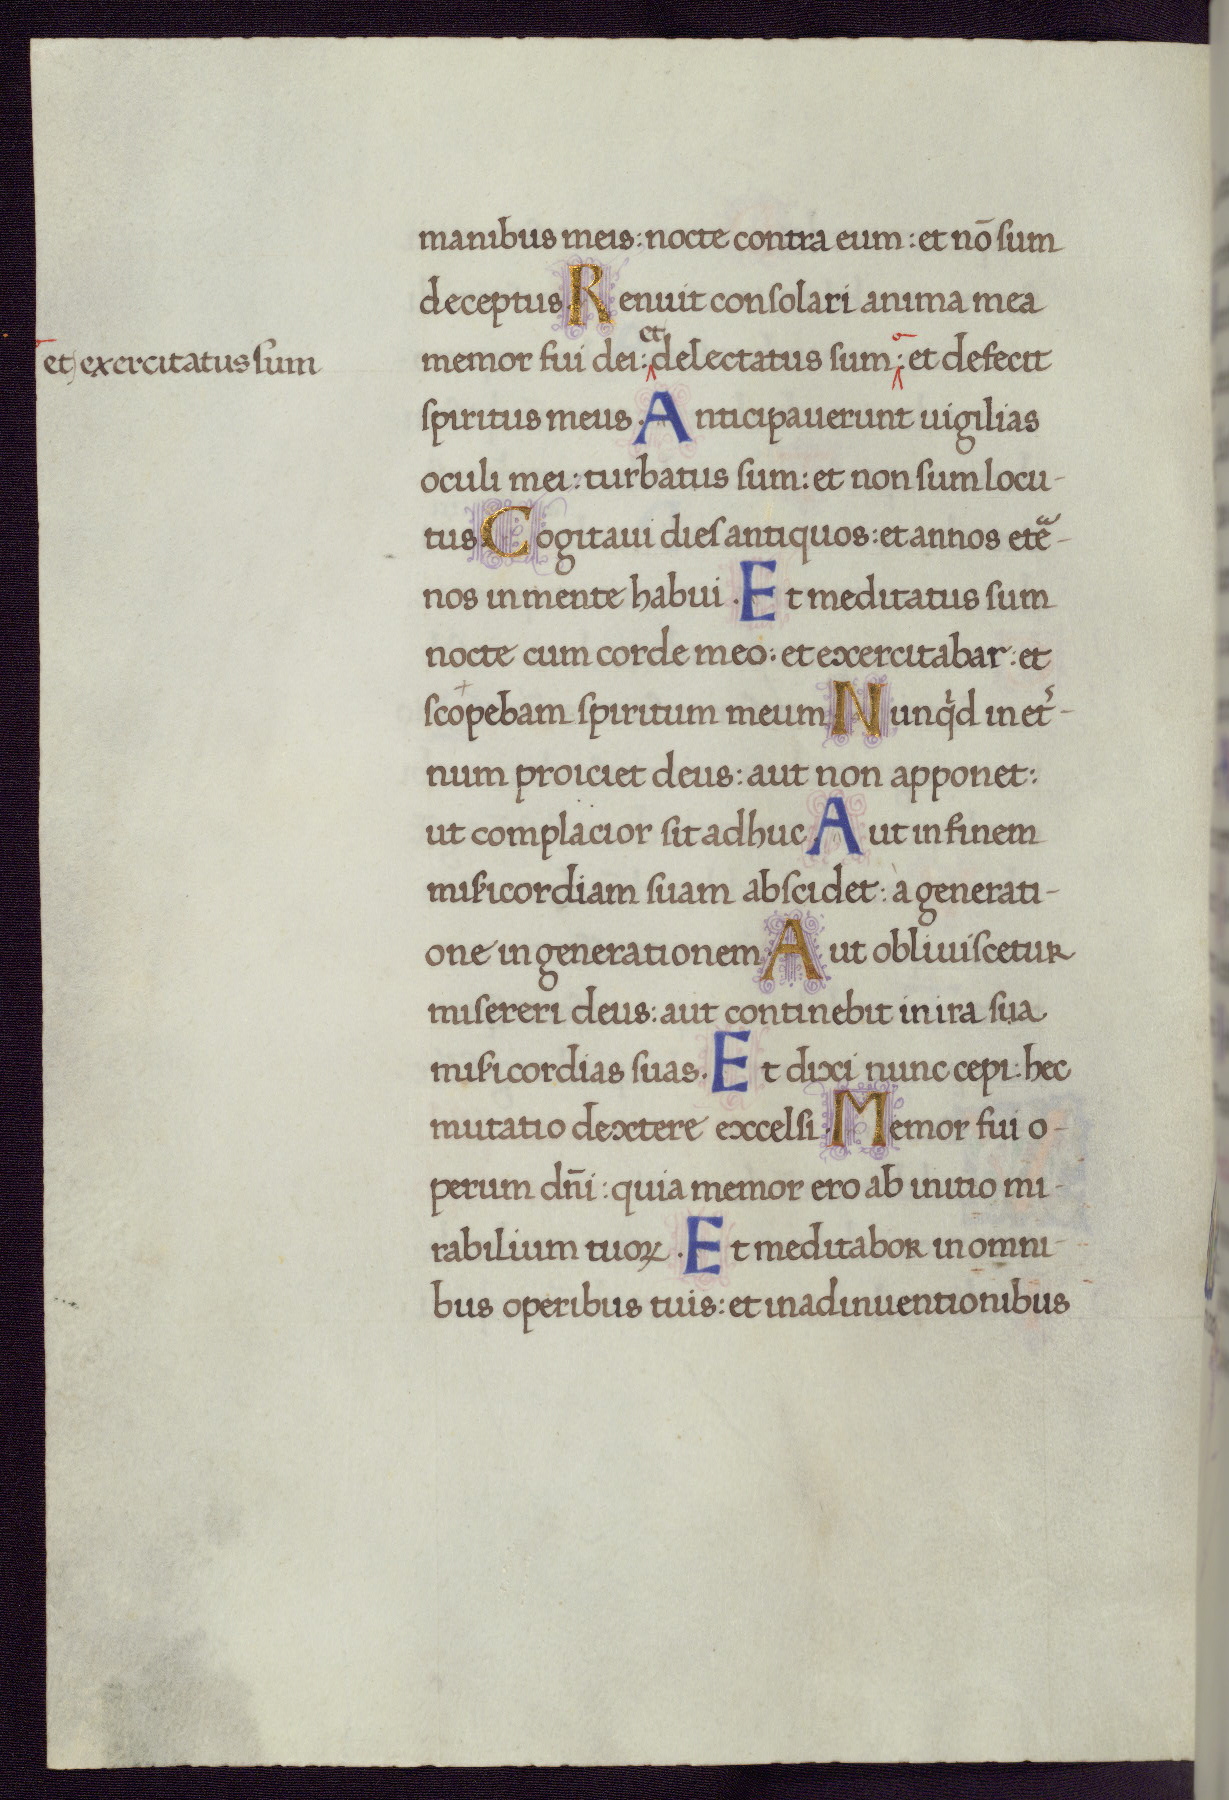 manibus meis: nocte contra eum: et nō sum
deceptus. Renuit consolari anima mea
et exercitatus sum
memor fui dei: et delectatus sum: et defecit
spiritus meus. Anticipauerunt uigilias
oculi mei: turbatus sum: et non sum locu-
tus. Cogitaui dies antiquos: et annos etẽ-
nos in mente habui. Et meditatus sum
nocte cum corde meo: et exercitabar: et
scopebam spiritum meum. Nunqid in et͛-
num proiciet deus: aut non apponet:
ut complacior sit adhuc. Aut in finem
misicordiam suam abscidet: à generati-
one in generationem. Aut obliuiscetur
misereri deus: aut continebit in ira sua
misicordias suas. Et dixi nunc cepi: hec
mutatio dextere excelsi. Memor fui o-
perum dn̄i: quia memor ero ab initio mi-
rabilium tuoꝝ. Et meditabor in omni-
bus operibus tuis: et in adinuentionibus